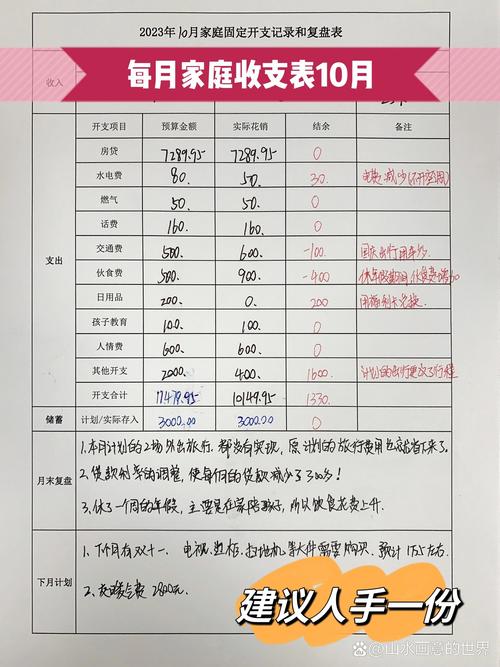 2023年10月家庭固定开支记录和复盘表
每月家庭收支表10月
收入
开支项目 预算金额 实际花销 结余 备注
支出
房贷 7289.95 7289.95 0
水电费 80. 50. 30. 电费减少(不开空调)
燃气 50. 50. 0
话费 160. 160. 0
交通费 500. 600. -100. 国庆出行用车多.
伙食费 500. 900. -400 休年假期间,伙食费增加
日用品 200. 0. 200 用福利卡兑换.
孩子教育 100. 100. 0
人情费 600. 600. 0
其他开支 2000. 400. 1600. 计划的出行更改了行程
开支合计 11479.95 10149.95 1330.
储蓄 计划/实际存入 3000.00 3000.00 0
月末复盘
1.本月计划的2场外出旅行,都没有实现,原计划的旅行费用也就省下来了.
2.贷款利率的调整,使每个月的贷款减少了300多!
3.休了一个周的年假,主要是在家陪孩子,所以饮食花费上升.
下月计划
1.下个月有双十一,电视、边柜、扫地机等大件需要购买,预计1万5左右.
2.交暖气费2800元.
建议人手一份
@山水画意的世界